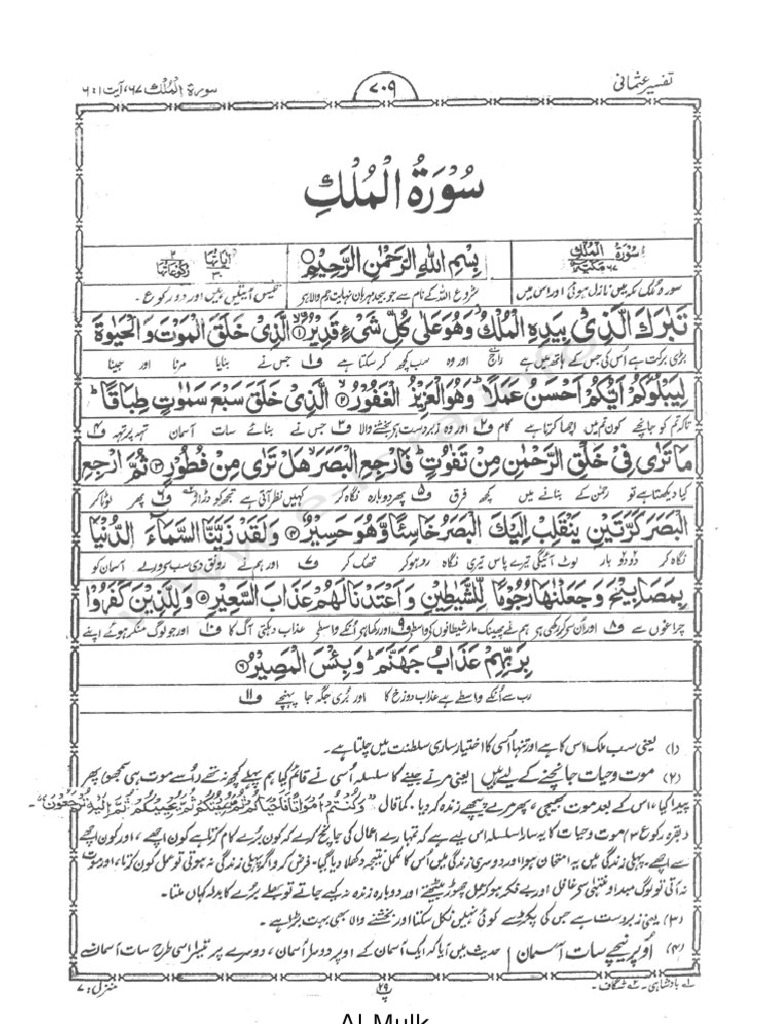 تفسیر عثمانی
۷۰۹
سورۃ الملک ۶۷، آیت ۱ : ۶
سُوْرَۃُ الْمُلْکِ
سُوْرَۃُ الْمُلْکِ
بِسْمِ اللّٰهِ الرَّحْمٰنِ الرَّحِیْمِ
اٰیَاتُهَا ۳۰
رُكُوْعَاتُهَا ۲
سورۂ ملک مکہ میں نازل ہوئی اور اس میں
شروع اللہ کے نام سے جو بیحد مہربان نہایت رحم والا ہے
تیس آیتیں ہیں اور دو رکوع۔
تَبٰرَكَ الَّذِیْ بِیَدِهِ الْمُلْكُ وَهُوَ عَلٰی كُلِّ شَیْءٍ قَدِیْرُ ۙ﴿۱﴾ الَّذِیْ خَلَقَ الْمَوْتَ وَ الْحَیٰوةَ
بڑی برکت ہے اُس کی جس کے ہاتھ میں ہے راج اور وہ سب کچھ کر سکتا ہے ف۱ جس نے بنایا مرنا اور جینا
لِیَبْلُوَكُمْ اَیُّكُمْ اَحْسَنُ عَمَلًا ؕ وَهُوَ الْعَزِیْزُ الْغَفُوْرُ ۙ﴿۲﴾ الَّذِیْ خَلَقَ سَبْعَ سَمٰوٰتٍ طِبَاقًا ؕ
تاکہ تم کو جانچے کون تم میں اچھا کرتا ہے کام ف۲ اور وہ زبردست ہے بخشنے والا ف۳ جس نے بنائے سات آسمان تہہ پر تہہ ف۴
مَا تَرٰی فِیْ خَلْقِ الرَّحْمٰنِ مِنْ تَفٰوُتٍ ؕ فَارْجِعِ الْبَصَرَ هَلْ تَرٰی مِنْ فُطُوْرٍ ﴿۳﴾ ثُمَّ ارْجِعِ
کیا دیکھتا ہے تو رحمٰن کے بنانے میں کچھ فرق ف۵ پھر دوبارہ نگاہ کر کہیں نظر آتی ہے تجھ کو دراڑ ف۶ پھر لوٹا کر
الْبَصَرَ كَرَّتَیْنِ یَنْقَلِبْ اِلَیْكَ الْبَصَرُ خَاسِئًا وَّهُوَ حَسِیْرٌ ﴿۴﴾ وَلَقَدْ زَیَّنَّا السَّمَآءَ الدُّنْیَا
نگاہ کر دو دو بار لوٹ آئیگی تیرے پاس تیری نگاہ رد ہو کر تھک کر ف۷ اور ہم نے رونق دی سب سے ورلے آسمان کو
بِمَصَابِیْحَ وَجَعَلْنٰهَا رُجُوْمًا لِّلشَّیٰطِیْنِ وَاَعْتَدْنَا لَهُمْ عَذَابَ السَّعِیْرِ ﴿۵﴾ وَلِلَّذِیْنَ كَفَرُوْا
چراغوں سے ف۸ اور اُن سے کر رکھی ہے ہم نے پھینک مار شیطانوں کے واسطے ف۹ اور رکھا ہے اُنکے واسطے عذاب دہکتی آگ کا ف۱۰ اور جو لوگ منکر ہوئے اپنے
بِرَبِّهِمْ عَذَابُ جَهَنَّمَ ؕ وَبِئْسَ الْمَصِیْرُ ﴿۶﴾
رب سے اُنکے واسطے ہے عذاب دوزخ کا اور بُری جگہ جا پہنچے ف۱۱
(۱) یعنی سب ملک اس کا ہے اور تنہا اُسی کا اختیار ساری سلطنت میں چلتا ہے۔
(۲) موت و حیات جانچنے کے لیے ہیں یعنی مرنے جینے کا سلسلہ اُسی نے قائم کیا ہم پہلے کچھ نہ تھے (اُسے موت ہی سمجھو) پھر
پیدا کیا، اس کے بعد موت بھیجی، پھر مرے پیچھے زندہ کر دیا۔ کما قال "وَكُنْتُمْ اَمْوَاتًا فَاَحْیَاكُمْ ثُمَّ یُمِیْتُكُمْ ثُمَّ یُحْیِیْكُمْ ثُمَّ اِلَیْهِ تُرْجَعُوْنَ"۔
(بقرہ رکوع ۳) موت و حیات کا یہ سارا سلسلہ اس لیے ہے کہ تمہارے اعمال کی جانچ کرے کہ کون بُرے کام کرتا ہے کون اچھے، اور کون اچھے
سے اچھے۔ پہلی زندگی میں یہ امتحان ہوا اور دوسری زندگی میں اُس کا مکمل نتیجہ دکھلا دیا گیا۔ فرض کرو اگر پہلی زندگی نہ ہوتی تو عمل کون کرتا، اور موت
نہ آتی تو لوگ مبدا و منتہیٰ سے غافل اور بے فکر ہو کر عمل چھوڑ بیٹھتے اور دوبارہ زندہ نہ کیے جاتے تو بھلے بُرے کا بدلہ کہاں ملتا۔
(۳) یعنی زبردست ہے جس کی پکڑ سے کوئی نہیں نکل سکتا اور بخشنے والا بھی بہت بڑا ہے۔
(۴) اُوپر نیچے سات آسمان حدیث میں آیا کہ ایک آسمان کے اوپر دوسرا آسمان، دوسرے پر تیسرا اسی طرح سات آسمان
۱ بادشاہی۔ ۲ شگاف۔
۲۹
منزل : ۷
Al-Mulk